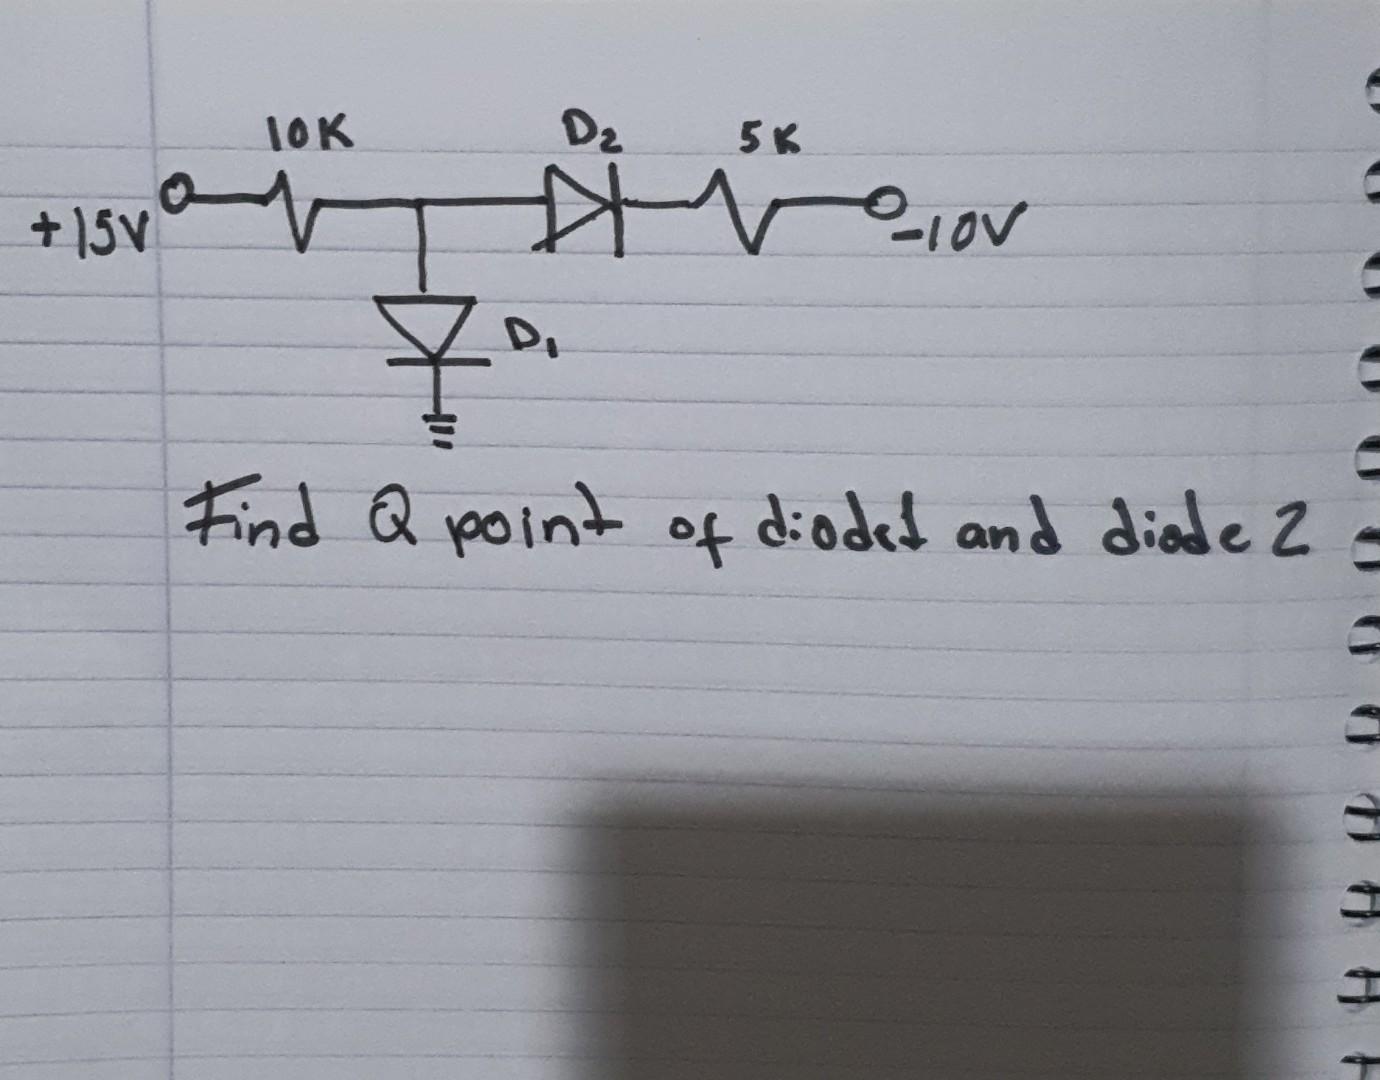 10K D2 5K
+15V -10V
D1
Find Q point of diode1 and diode 2